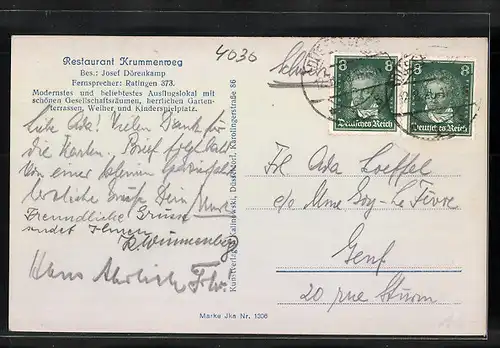 Restaurant Krummenweg
Bes.: Josef Dörenkamp
Fernsprecher: Ratingen 373.
Modernstes und beliebtestes Ausflugslokal mit
schönen Gesellschaftsräumen, herrlichen Garten-
terrassen, Weiher und Kinderspielplatz.
4030
Liebe Ada! Vielen Dank für
die Karten. Brief folgt bald.
Von einer schönen
herzliche Grüße Dein
Freundliche Grüsse
sendet Ihnen
R. Wimmenberg
Hans
Kunstverlag Kalinowski, Düsseldorf, Karolingerstraße 86
Marke Jka Nr. 1306
8 8
Deutsches Reich
8 8
Deutsches Reich
Frl Ada Loeffel
c/o Mme Soy-Le Fèvre
Genf
20 rue Sturm